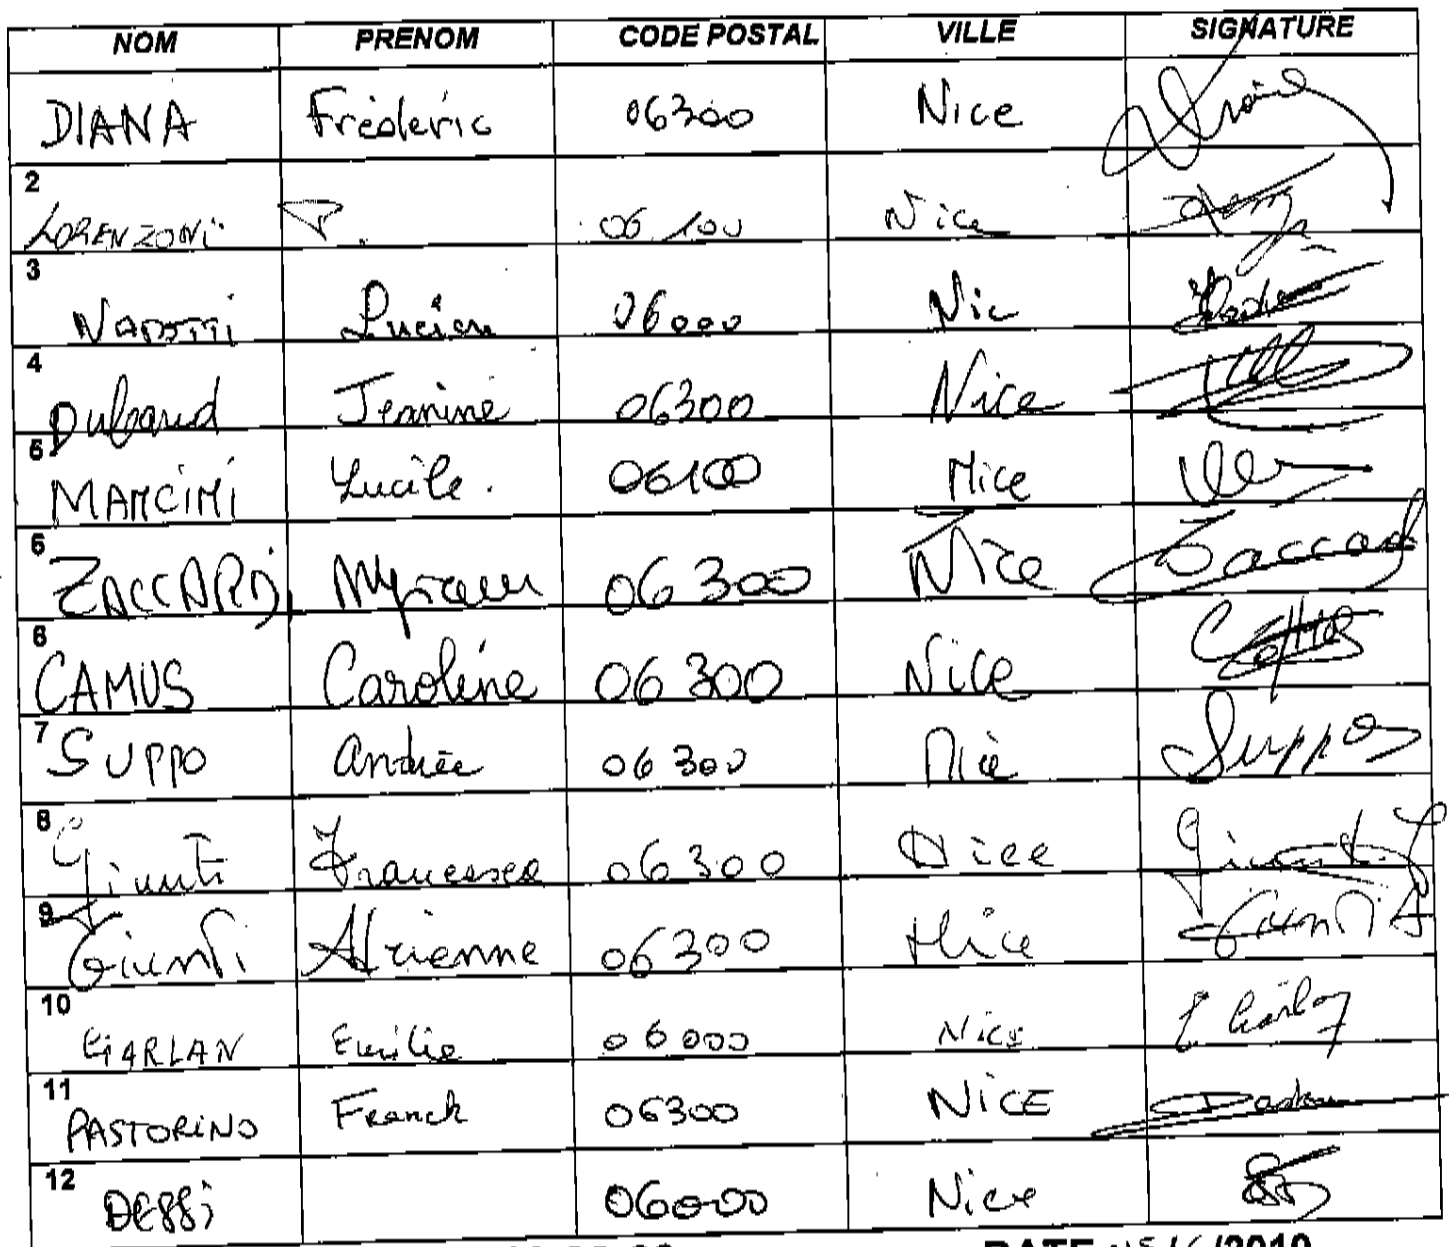 NOM PRENOM CODE POSTAL VILLE SIGNATURE
DIANA Fréderic 06300 Nice
2
LORENZONI P. 06100 Nice
3
Lucien 06000 Nic
4
Dubaud Jeanine 06300 Nice
5
MANCINI Lucile. 06100 Nice
5
ZACCARDI Myriam 06300 Nice Zaccad
6
CAMUS Caroline 06300 Nice
7
SUPPO Andrée 06300 Nice Suppo
8
Giunti Francesca 06300 Nice Giunti
9
Giunti Adrienne 06300 Nice Giunti A
10
GARLAN Emilie 06000 Nice
11
PASTORINO Franck 06300 NICE
12
DESSI 06000 Nice
DATE /2010